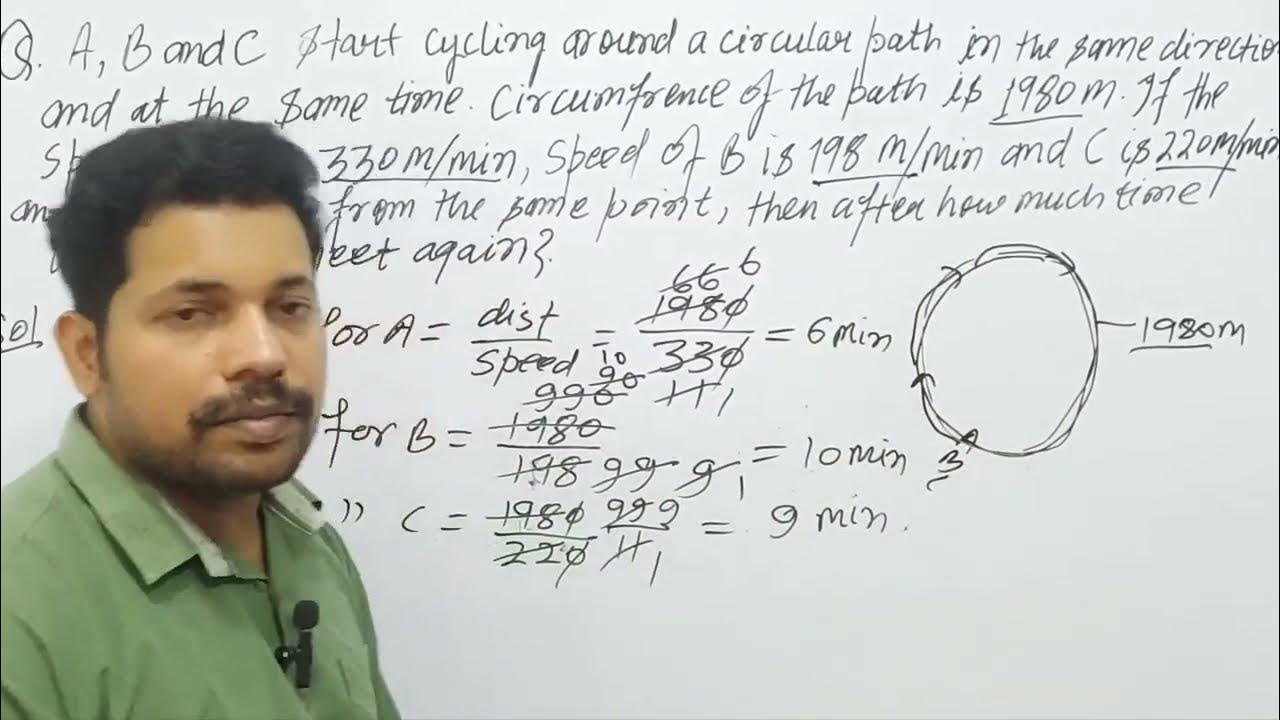 Q. A, B and C start cycling around a circular path in the same directio
and at the same time. Circumfrence of the path is 1980m. If the
Sp 330m/min, speed of B is 198 m/min and C is 220m/min
an from the same point, then after how much time
eet again?
Sol
for A = dist / speed = 1980 / 330 = 6 min
66 6
11 1
1980m
for B = 1980 / 198 = 10 min
990 90 10
99 9 1
3
" C = 1980 / 220 = 9 min.
99 9
11 1